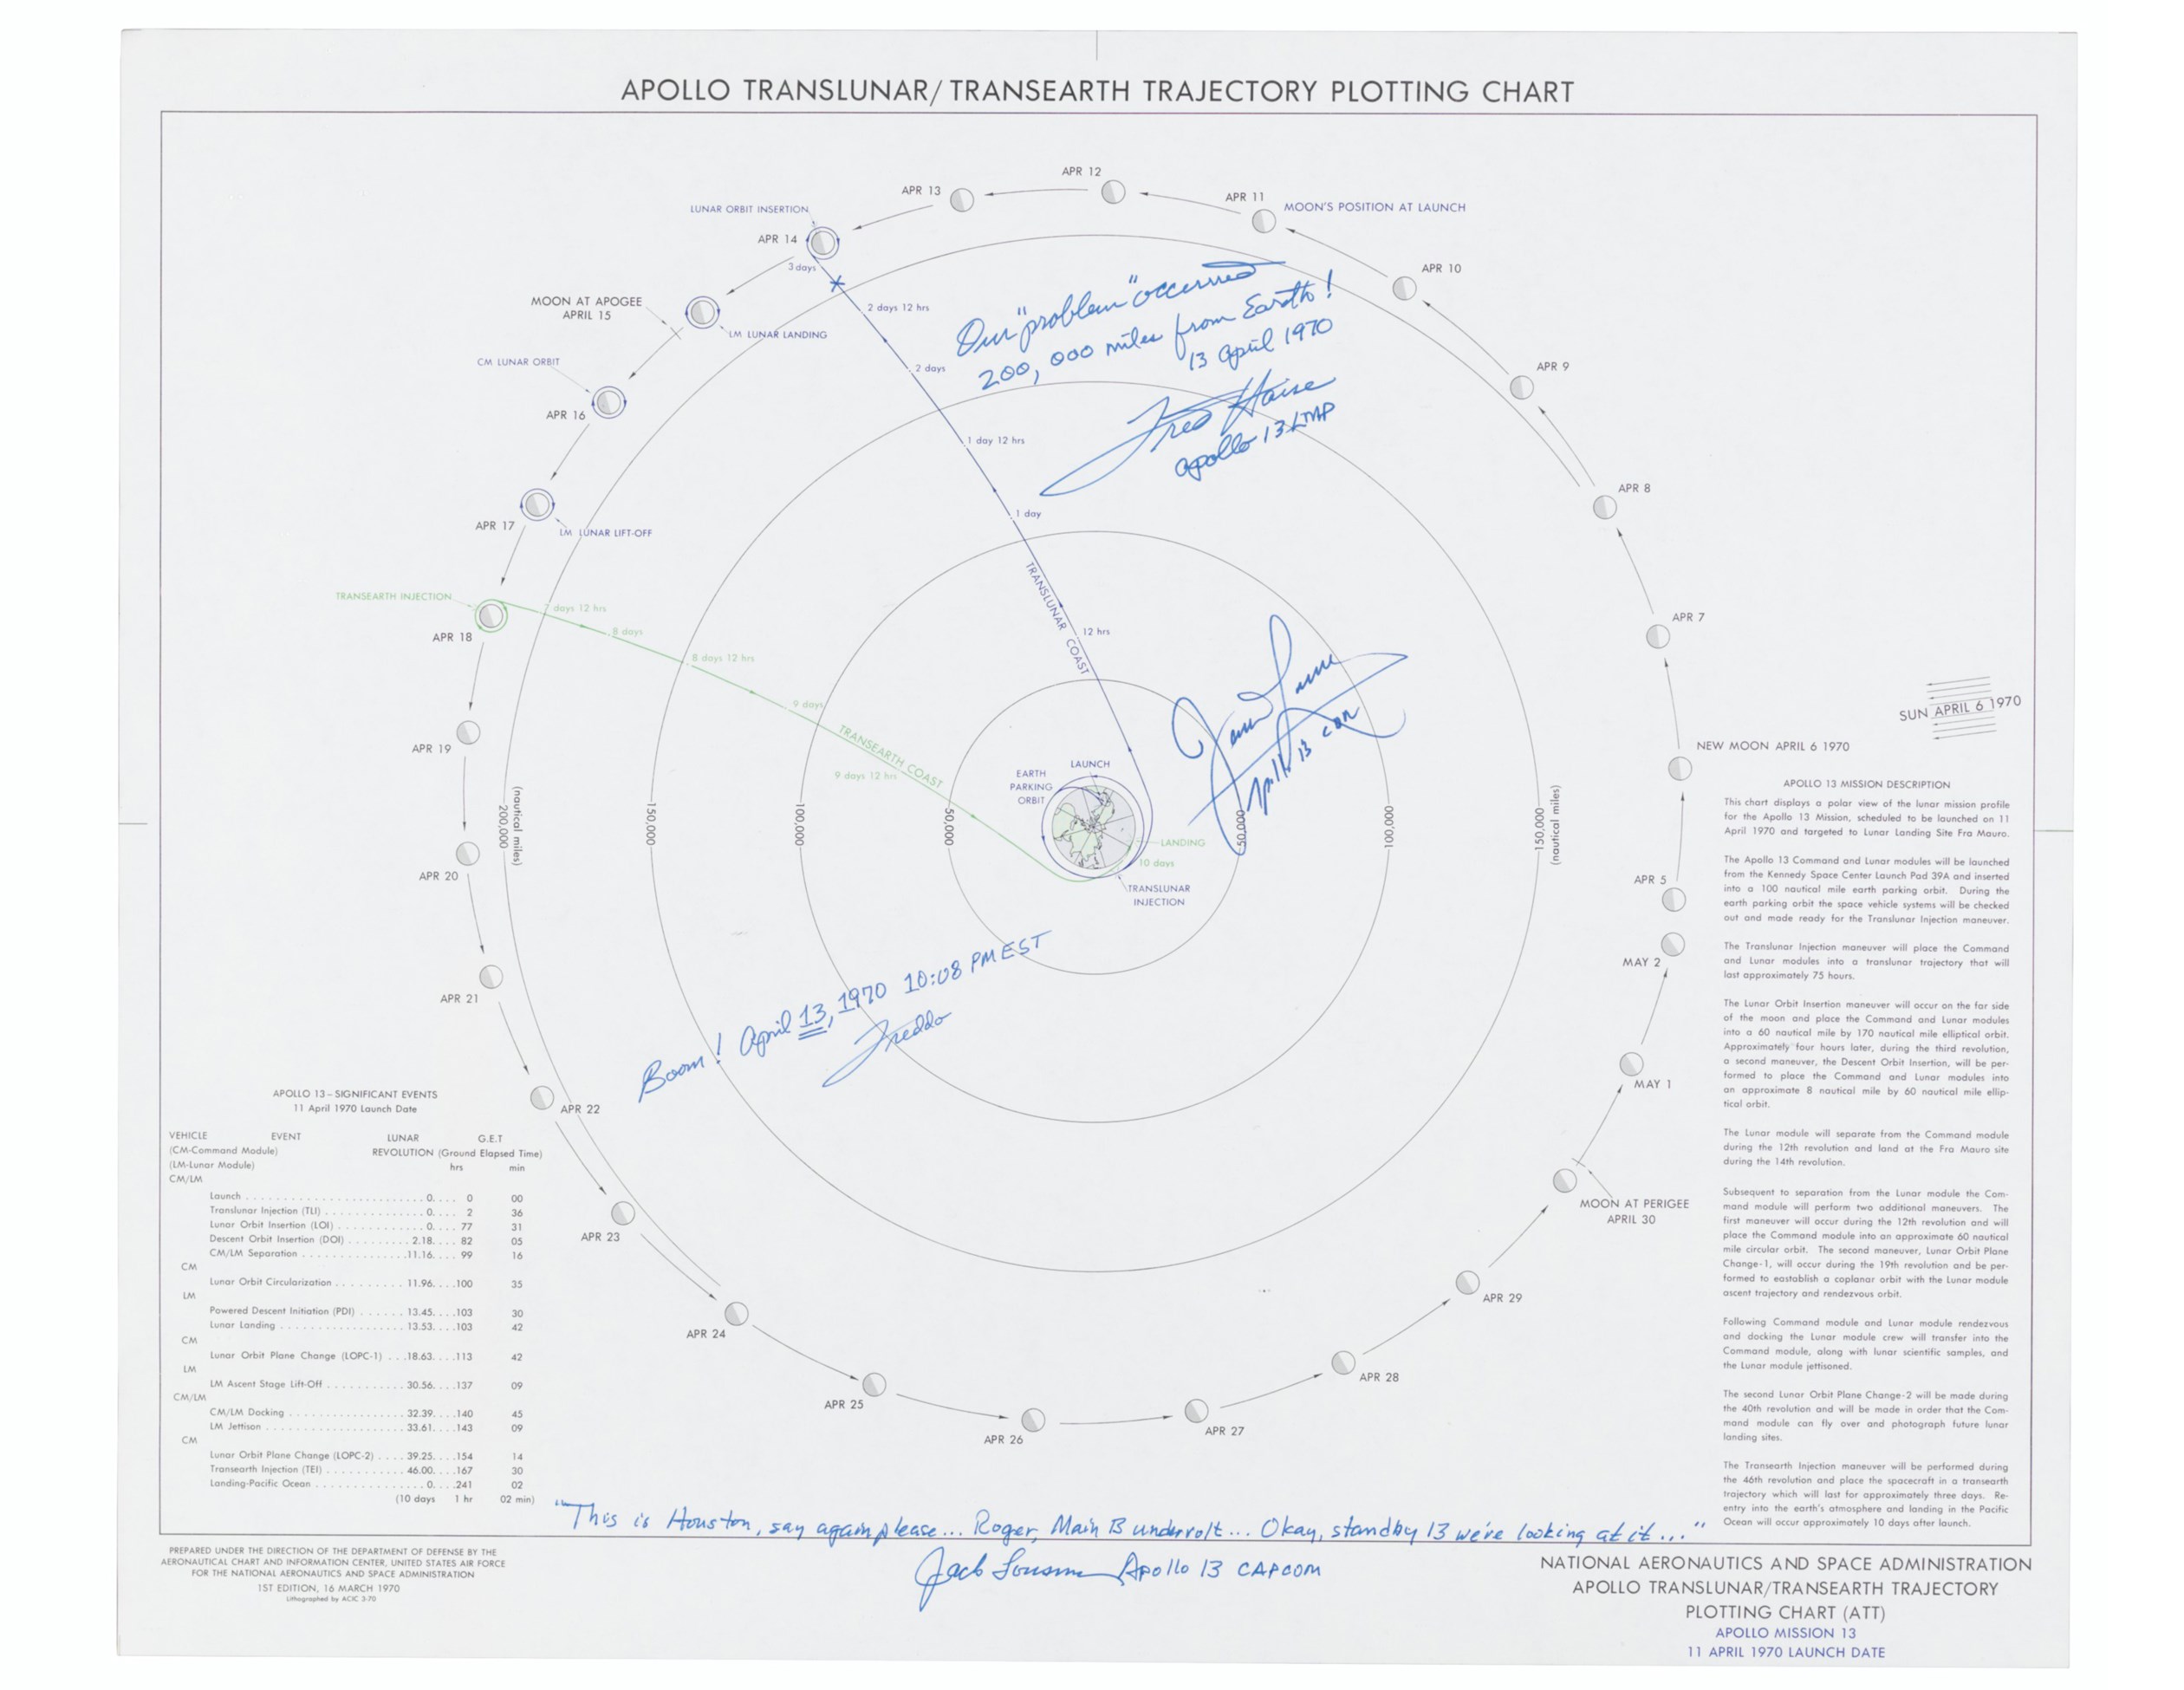 APOLLO TRANSLUNAR/TRANSEARTH TRAJECTORY PLOTTING CHART
APR 12
APR 13
APR 11
MOON'S POSITION AT LAUNCH
LUNAR ORBIT INSERTION
APR 14
3 days
APR 10
Our "problem" occurred
200,000 miles from Earth!
13 April 1970
Fred Haise
Apollo 13 LMP
MOON AT APOGEE
APRIL 15
2 days 12 hrs
LM LUNAR LANDING
CM LUNAR ORBIT
2 days
APR 9
APR 16
1 day 12 hrs
APR 8
1 day
APR 17
LM LUNAR LIFT-OFF
TRANSLUNAR COAST
TRANSEARTH INJECTION
7 days 12 hrs
APR 18
8 days
12 hrs
APR 7
8 days 12 hrs
James Lovell
Apollo 13 CDR
9 days
SUN APRIL 6 1970
TRANSEARTH COAST
NEW MOON APRIL 6 1970
APR 19
9 days 12 hrs
LAUNCH
EARTH
PARKING
ORBIT
200,000
(nautical miles)
150,000
100,000
50,000
50,000
100,000
150,000
(nautical miles)
LANDING
10 days
TRANSLUNAR
INJECTION
APR 20
APR 5
MAY 2
Boom! April 13, 1970 10:08 PM EST
Freddo
APR 21
MAY 1
APR 22
MOON AT PERIGEE
APRIL 30
APR 23
APR 29
APR 24
APR 28
APR 25
APR 27
APR 26
APOLLO 13 MISSION DESCRIPTION
This chart displays a polar view of the lunar mission profile
for the Apollo 13 Mission, scheduled to be launched on 11
April 1970 and targeted to Lunar Landing Site Fra Mauro.
The Apollo 13 Command and Lunar modules will be launched
from the Kennedy Space Center Launch Pad 39A and inserted
into a 100 nautical mile earth parking orbit. During the
earth parking orbit the space vehicle systems will be checked
out and made ready for the Translunar Injection maneuver.
The Translunar Injection maneuver will place the Command
and Lunar modules into a translunar trajectory that will
last approximately 75 hours.
The Lunar Orbit Insertion maneuver will occur on the far side
of the moon and place the Command and Lunar modules
into a 60 nautical mile by 170 nautical mile elliptical orbit.
Approximately four hours later, during the third revolution,
a second maneuver, the Descent Orbit Insertion, will be per-
formed to place the Command and Lunar modules into
an approximate 8 nautical mile by 60 nautical mile ellip-
tical orbit.
The Lunar module will separate from the Command module
during the 12th revolution and land at the Fra Mauro site
during the 14th revolution.
Subsequent to separation from the Lunar module the Com-
mand module will perform two additional maneuvers. The
first maneuver will occur during the 12th revolution and will
place the Command module into an approximate 60 nautical
mile circular orbit. The second maneuver, Lunar Orbit Plane
Change-1, will occur during the 19th revolution and be per-
formed to eastablish a coplanar orbit with the Lunar module
ascent trajectory and rendezvous orbit.
Following Command module and Lunar module rendezvous
and docking the Lunar module crew will transfer into the
Command module, along with lunar scientific samples, and
the Lunar module jettisoned.
The second Lunar Orbit Plane Change-2 will be made during
the 40th revolution and will be made in order that the Com-
mand module can fly over and photograph future lunar
landing sites.
The Transearth Injection maneuver will be performed during
the 46th revolution and place the spacecraft in a transearth
trajectory which will last for approximately three days. Re-
entry into the earth's atmosphere and landing in the Pacific
Ocean will occur approximately 10 days after launch.
APOLLO 13 – SIGNIFICANT EVENTS
11 April 1970 Launch Date
VEHICLE EVENT LUNAR G.E.T
(CM-Command Module) REVOLUTION (Ground Elapsed Time)
(LM-Lunar Module) hrs min
CM/LM
Launch 0 0 00
Translunar Injection (TLI) 0 2 36
Lunar Orbit Insertion (LOI) 0 77 31
Descent Orbit Insertion (DOI) 2.18 82 05
CM/LM Separation 11.16 99 16
CM
Lunar Orbit Circularization 11.96 100 35
LM
Powered Descent Initiation (PDI) 13.45 103 30
Lunar Landing 13.53 103 42
CM
Lunar Orbit Plane Change (LOPC-1) 18.63 113 42
LM
LM Ascent Stage Lift-Off 30.56 137 09
CM/LM
CM/LM Docking 32.39 140 45
LM Jettison 33.61 143 09
CM
Lunar Orbit Plane Change (LOPC-2) 39.25 154 14
Transearth Injection (TEI) 46.00 167 30
Landing-Pacific Ocean 0 241 02
(10 days 1 hr 02 min)
"This is Houston, say again please... Roger, Main B undervolt... Okay, standby 13 we're looking at it..."
Jack Lousma Apollo 13 CAPCOM
PREPARED UNDER THE DIRECTION OF THE DEPARTMENT OF DEFENSE BY THE
AERONAUTICAL CHART AND INFORMATION CENTER, UNITED STATES AIR FORCE
FOR THE NATIONAL AERONAUTICS AND SPACE ADMINISTRATION
1ST EDITION, 16 MARCH 1970
Lithographed by ACIC 3-70
NATIONAL AERONAUTICS AND SPACE ADMINISTRATION
APOLLO TRANSLUNAR/TRANSEARTH TRAJECTORY
PLOTTING CHART (ATT)
APOLLO MISSION 13
11 APRIL 1970 LAUNCH DATE